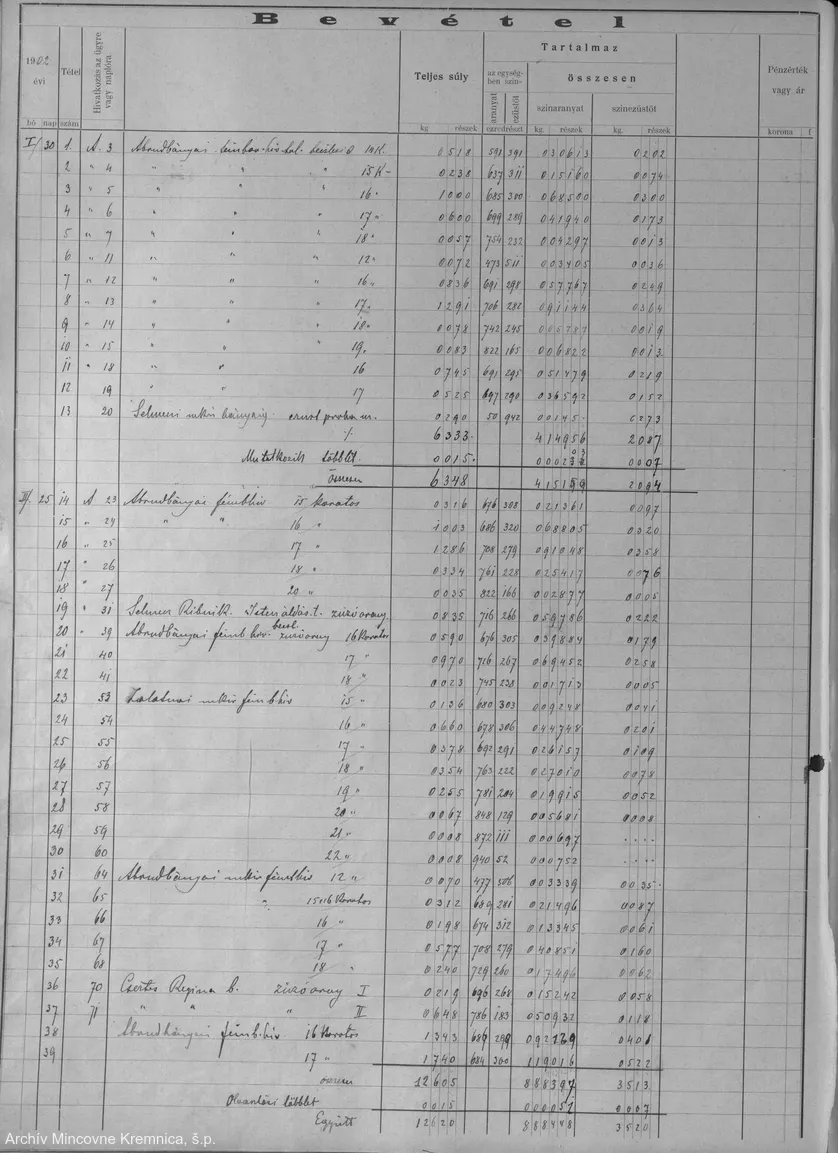 Bevétel
1902 évi
hó nap
Tétel szám
Hivatkozás az ügyre vagy naplóra
Teljes súly
kg. részek
Tartalmaz
az egységben szín-
aranyat ezüstöt
ezredrészt
összesen
színaranyat
kg. részek
színezüstöt
kg. részek
Pénzérték vagy ár
korona f
I/ 30 1. A. 3 Abrudbányai 14 K. 0518 591 391 030613 0202
2 " 4 " " " 15 K- 0238 637 311 015160 0074
3 " 5 " " " 16 " 1000 685 300 068500 0300
4 " 6 " " " 17 " 0600 699 289 041940 0173
5 " 7 " " " 18 " 0057 754 232 004297 0013
6 " 11 " " " 12 " 0072 473 511 003405 0036
7 " 12 " " " 16 " 0836 691 298 057767 0249
8 " 13 " " " 17 " 1291 706 282 091144 0364
9 " 14 " " " 18 " 0078 742 245 005787 0019
10 " 15 " " " 19 " 0083 822 165 006822 0013
11 " 18 " " 16 0745 691 295 051479 0219
12 19 " " 17 0525 697 290 036592 0152
13 20 Selmeci 0290 50 942 00145 0273
./. 6333 414956 2087
Mutatkozik többlet 0015 0007
összesen 6348 415159 2094
II/ 25 14 A 23 Abrudbányai fémbhiv 15 karatos 0316 676 308 021361 0097
15 " 24 " " 16 " 1003 686 320 068805 0320
16 " 25 17 " 1286 708 279 091048 0358
17 " 26 18 " 0334 761 228 025417 0076
18 " 27 20 " 0035 822 166 002877 0005
19 " 31 Istenáldás t. zúzóarany 0835 716 266 059786 0222
20 " 39 Abrudbányai fémb.hiv. zúzóarany 16 karatos 0590 676 305 039884 0179
21 40 17 " 0970 716 267 069452 0258
22 41 18 " 0023 745 238 001713 0005
23 53 Zalatnai mkir fémb.hiv 15 " 0136 680 303 009248 0041
24 54 16 " 0660 678 306 044748 0201
25 55 17 " 0378 692 291 026157 0109
26 56 18 " 0354 763 222 027010 0078
27 57 19 " 0255 781 204 019915 0052
28 58 20 " 0067 848 129 005681 0008
29 59 21 " 0008 872 111 000697 ....
30 60 22 " 0008 940 52 000752 ....
31 64 Abrudbányai mkir fémbhiv 12 " 0070 477 506 003339 0035
32 65 " 15 16 Karatos 0312 689 281 021496 0087
33 66 16 " 0198 674 312 013345 0061
34 67 17 " 0577 708 279 040851 0160
35 68 18 " 0240 729 260 017496 0062
36 70 Csertes Regina b. zúzóarany I 0219 696 268 015242 0058
37 71 " " " " II 0648 786 183 050932 0118
38 Abrudbányai fémb.hiv. 16 Karatos 1343 0401
39 17 " 1740 684 300 119016 0522
összesen 12605 888397 3513
Olvasztási többlet 0015 000051 0007
Együtt 12620 888448 3520
Archív Mincovne Kremnica, š.p.